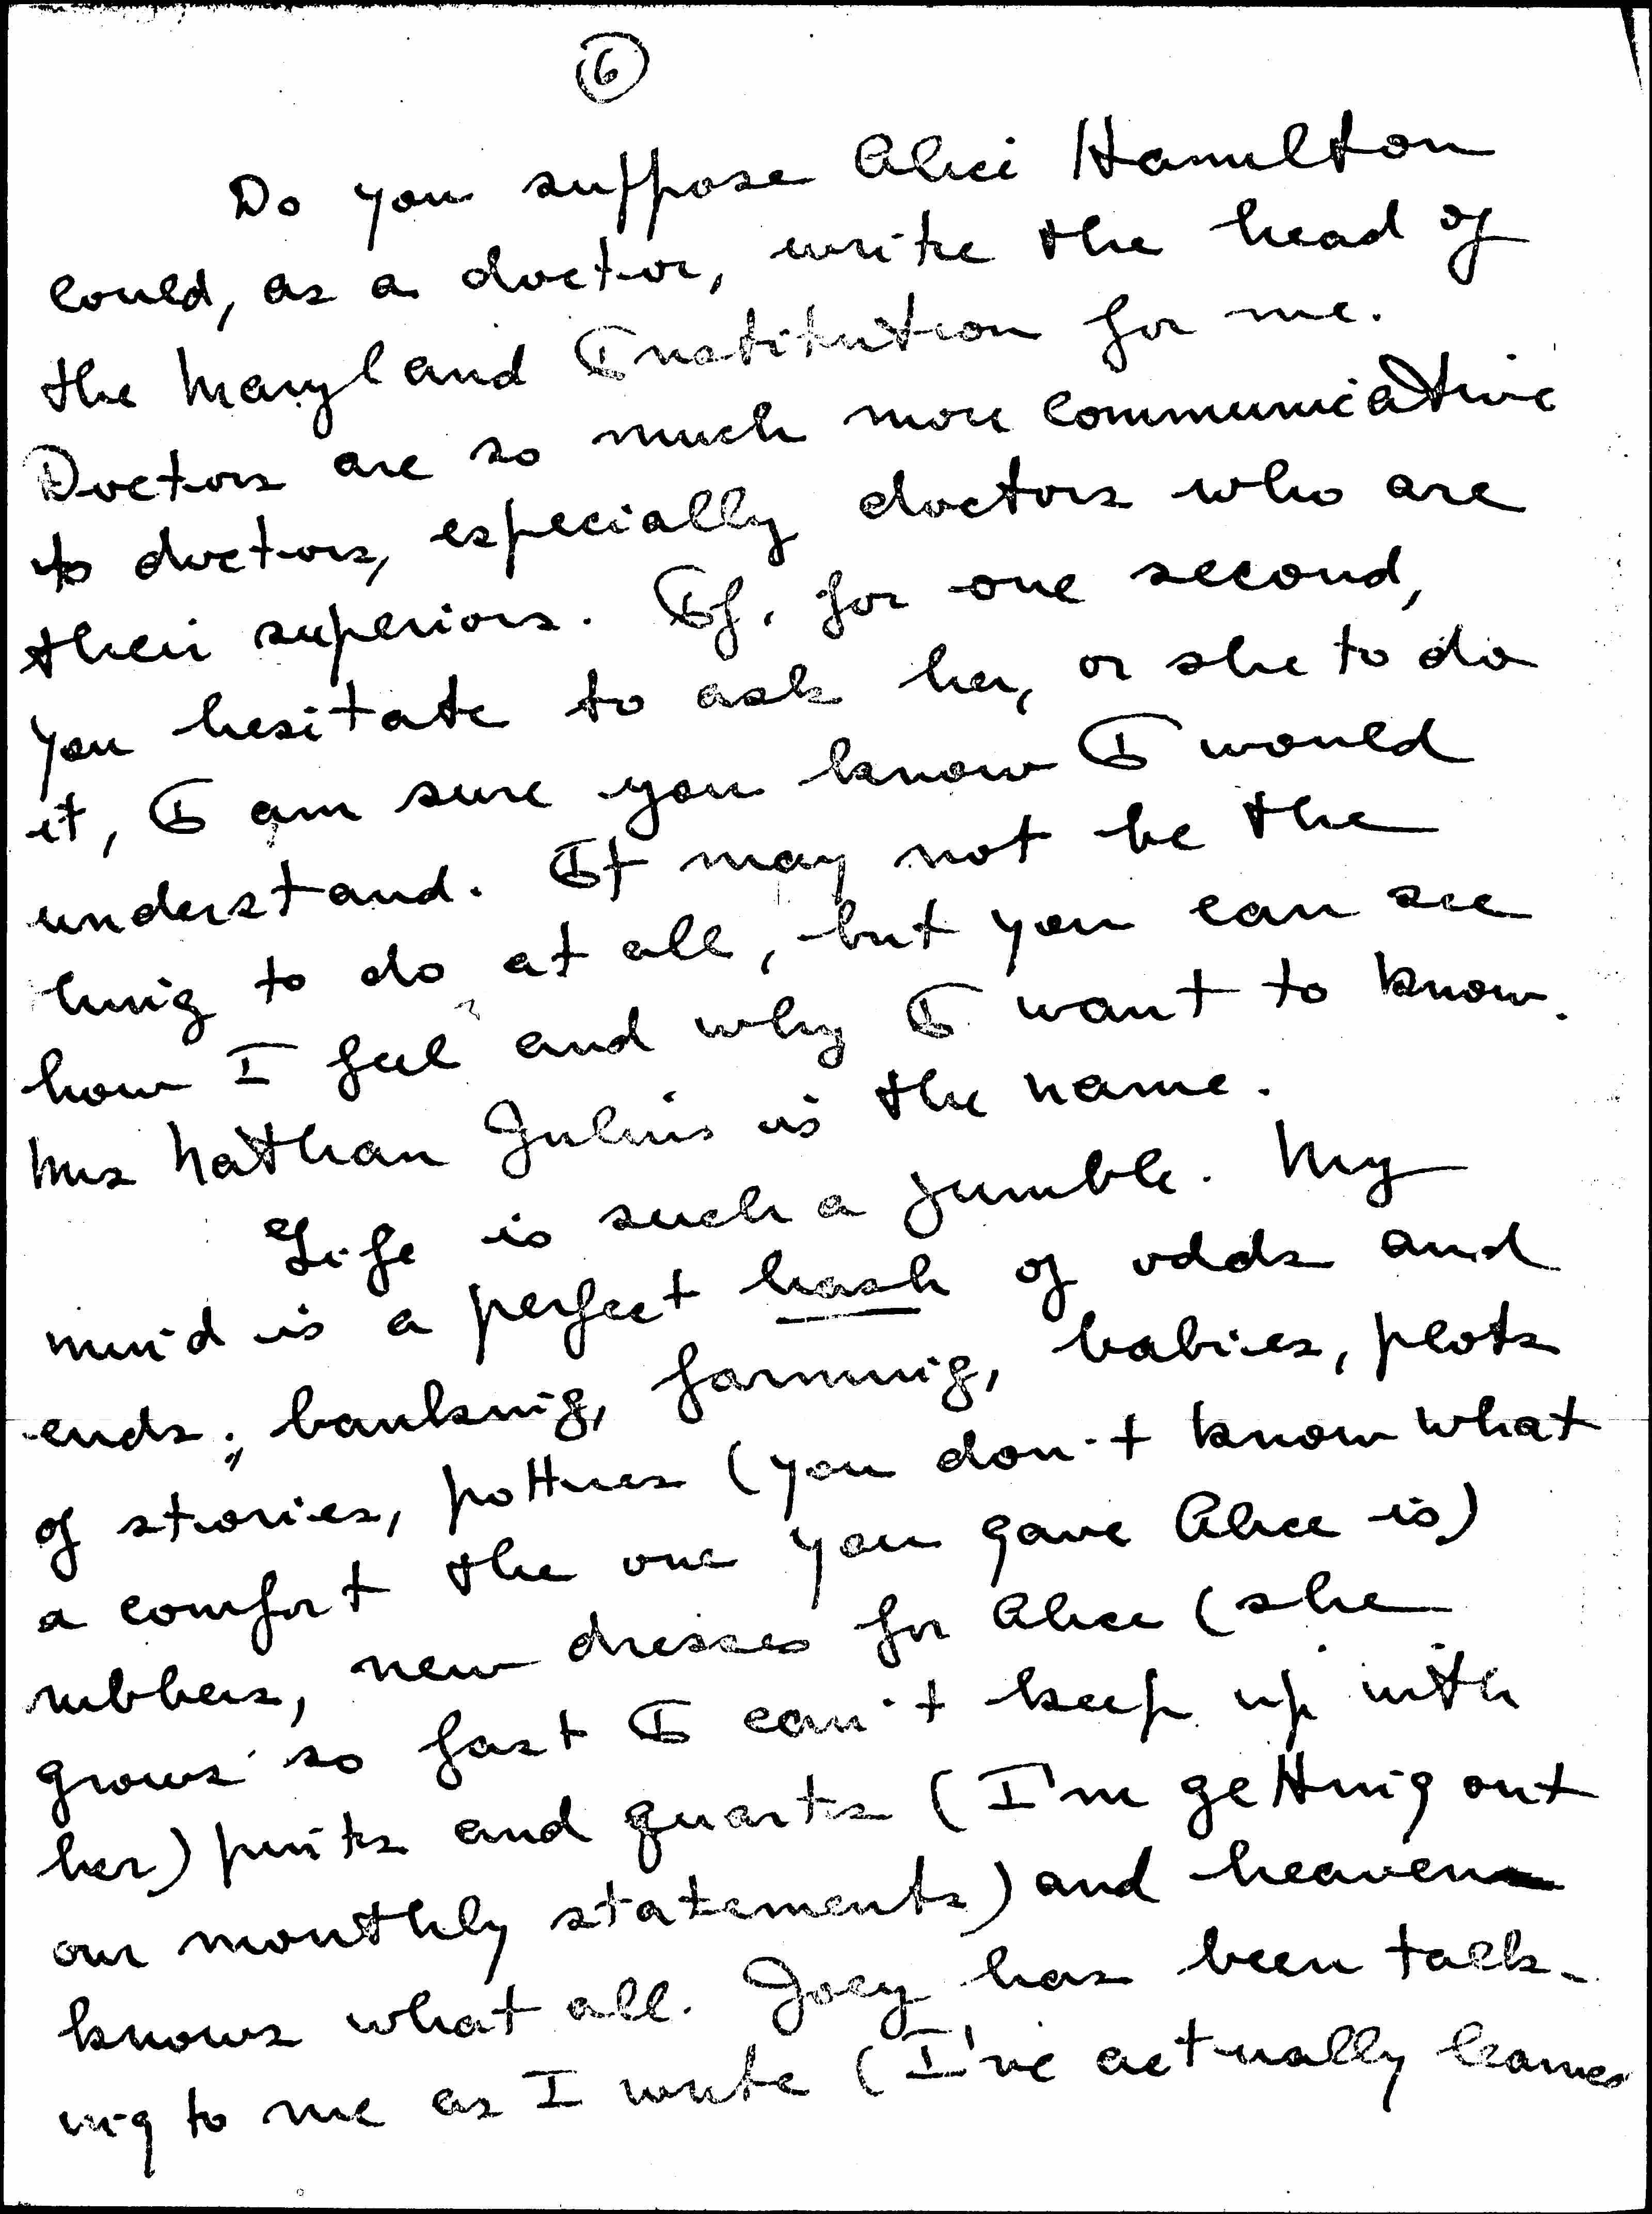 6
Do you suppose Alice Hamilton
could, as a doctor, write the head of
the Maryland Institution for me.
Doctors are so much more communicative
to doctors, especially doctors who are
their superiors. If, for one second,
you hesitate to ask her, or she to do
it, I am sure you know I would
understand. It may not be the
thing to do at all, but you can see
how I feel and why I want to know.
Mrs Nathan Julius is the name.
Life is such a jumble. My
mind is a perfect hash of odds and
ends; banking, farming, babies, plots
of stories, potties (you don't know what
a comfort the one you gave Alice is)
rubbers, new dresses for Alice (she
grows so fast I can't keep up with
her) pints and quarts (I'm getting out
our monthly statements) and heaven
knows what all. Joey has been talk-
ing to me as I write (I've actually